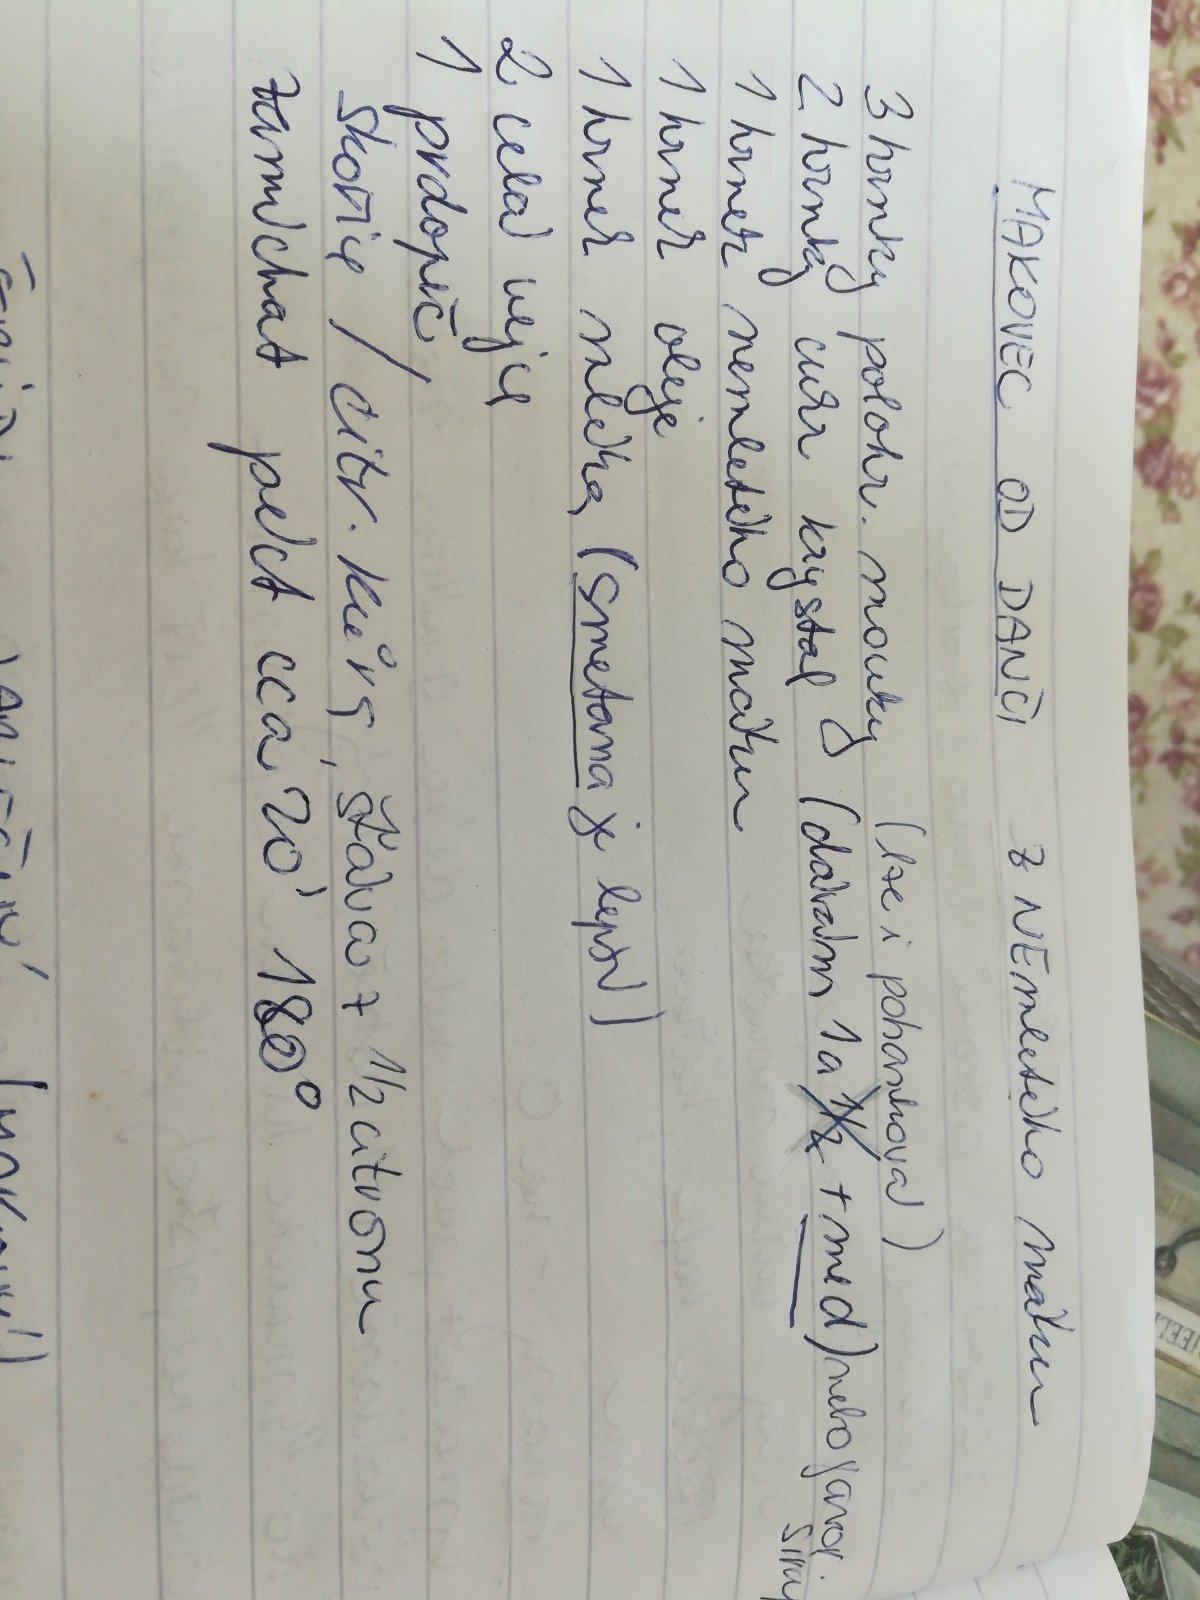 MAKOVEC OD DANČI z NEmletého máku
(lze i pohanková)
3 hrnky polohr. mouky
2 hrnky cukr krystal (dávám 1 a 1/2 + med) nebo javor. sirup
1 hrnek nemletého máku
1 hrnek oleje
1 hrnek mléka (smetana je lepší)
2 celá vejce
1 prdopeč,
skořice / citr. kůra, šťáva z 1/2 citronu
zamíchat péct cca 20' 180°